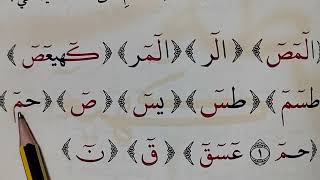 ﴿الٓمٓصٓ﴾ ﴿الٓر﴾ ﴿الٓمٓر﴾ ﴿كٓهيعٓصٓ﴾
﴿طسٓمٓ﴾ ﴿طسٓ﴾ ﴿يسٓ﴾ ﴿صٓ﴾ ﴿حمٓ﴾
﴿حمٓ ١ عٓسٓقٓ﴾ ﴿قٓ﴾ ﴿نٓ﴾